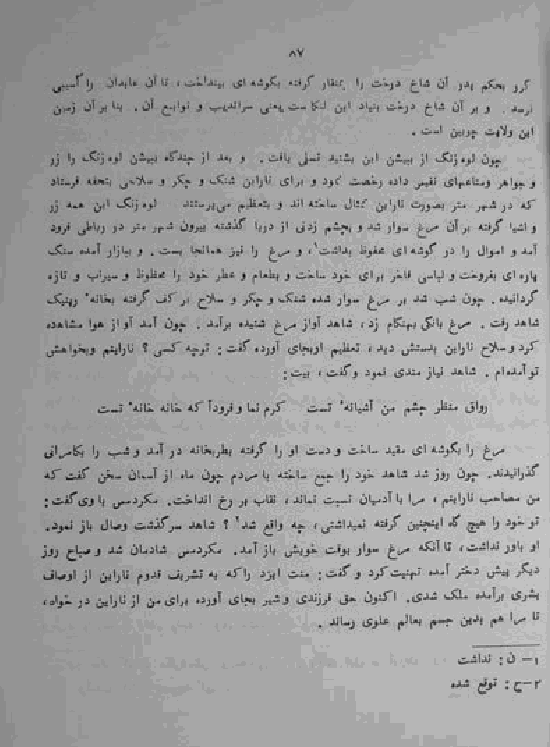 ۸۷
گرو بحکم پدر آن شاخ درخت را بمنقار گرفته بگوشه ای بینداخت، تا آن عابدان را آسیبی
نرسد. و بر آن شاخ درخت بنیاد این لنکاست یعنی سراندیب و توابع آن. بنا بر آن زمین
این ولایت چربین است.
چون لوه زنگ از بیشن این بشنید تسلی یافت. و بعد از چندگاه بیشن لوه زنگ را زر
و جواهر و متاعهای نفیس داده رخصت کرد و برای ناراین شنک و چکر و سلاحی بتحفه فرستاد
که در شهر متر بصورت ناراین کتال ساخته اند و بتعظیم می پرستند. لوه زنگ این همه زر
و اشیا گرفته بر آن مرغ سوار شد و بچشم زدنی از دریا گذشته بیرون شهر متر در رباطی فرود
آمد و اموال را در گوشه ای محفوظ بداشت۱، و مرغ را نیز همانجا بست. و ببازار آمده سنگ
پاره ای بفروخت و لباسی فاخر برای خود ساخت و بطعام و عطر خود را محظوظ و سیراب و تازه
گردانید. چون شب شد بر مرغ سوار شده شنک و چکر و سلاح بر کف گرفته بخانهٔ روپنیک
شاهد رفت. مرغ بانگی بهنگام زد، شاهد آواز مرغ شنیده برآمد. چون آمد او از هوا مشاهده
کرد و سلاح ناراین بدستش دید، تعظیم او بجای آورده گفت: تو چه کسی؟ ناراینم و بخواهش
تو آمده ام. شاهد نیازمندی نمود و گفت، بیت:
رواق منظر چشم من آشیانهٔ تست کرم نما و فرودآ که خانه خانهٔ تست
مرغ را بگوشه ای مقید ساخت و دست او را گرفته بطربخانه در آمد و شب را بکامرانی
گذرانیدند. چون روز شد شاهد خود را جمع ساخته با مردم چون ماه از آسمان سخن گفت که
من مصاحب ناراینم، مرا با آدمیان نسبت نماند، نقاب بر رخ انداخت. مکردسی با وی گفت:
تو خود را هیچ گاه اینچنین گرفته نمیداشتی، چه واقع شد۲؟ شاهد سرگذشت وصال باز نمود.
او باور نداشت، تا آنکه مرغ سوار بوقت خویش باز آمد. مکردسی شادمان شد و صباح روز
دیگر پیش دختر آمده تهنیت کرد و گفت: منت ایزد را که به تشریف قدوم ناراین از اوصاف
بشری برآمده ملک شدی. اکنون حق فرزندی و شیر بجای آورده برای من از ناراین در خواه،
تا مرا هم بدین جسم بعالم علوی رساند.
۱- ن: نداشت
۲- ح: توقع شده